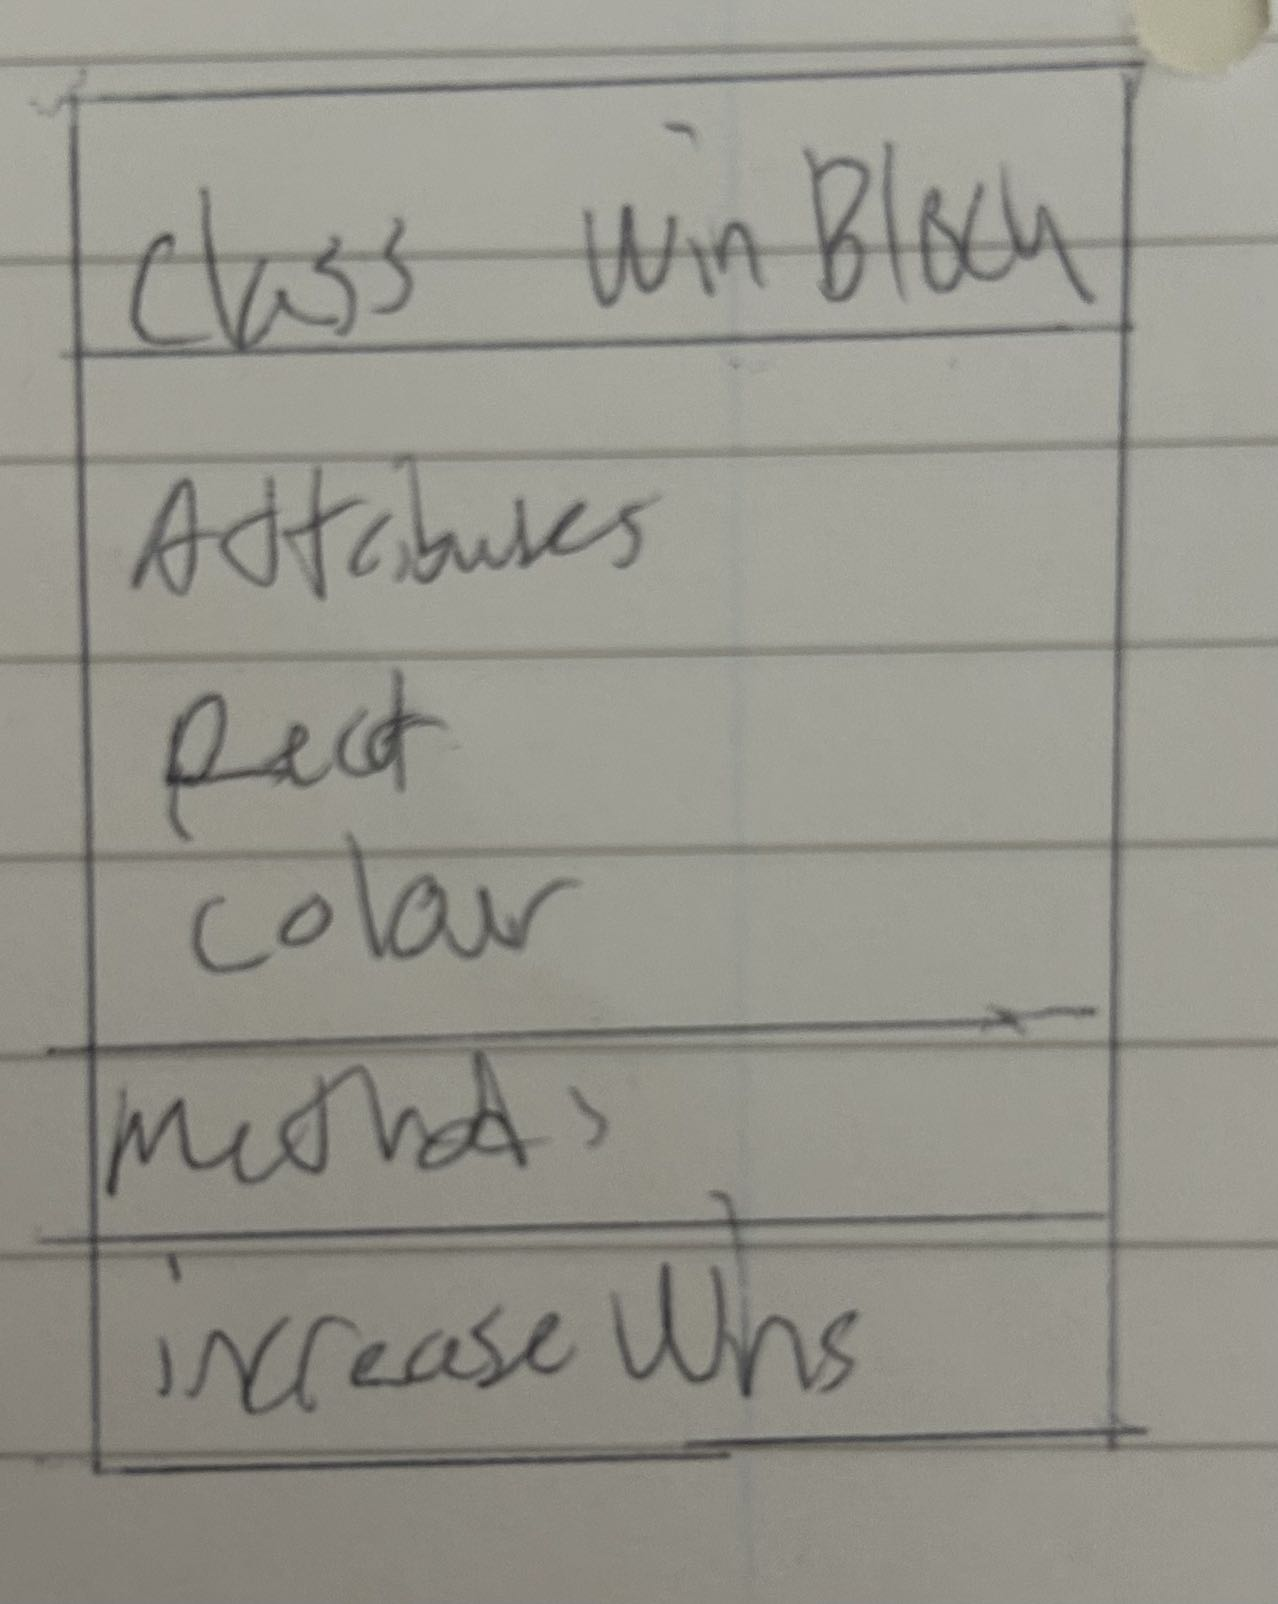 Class WinBlock
Attributes
Rect
colour
Methods
increase Wins